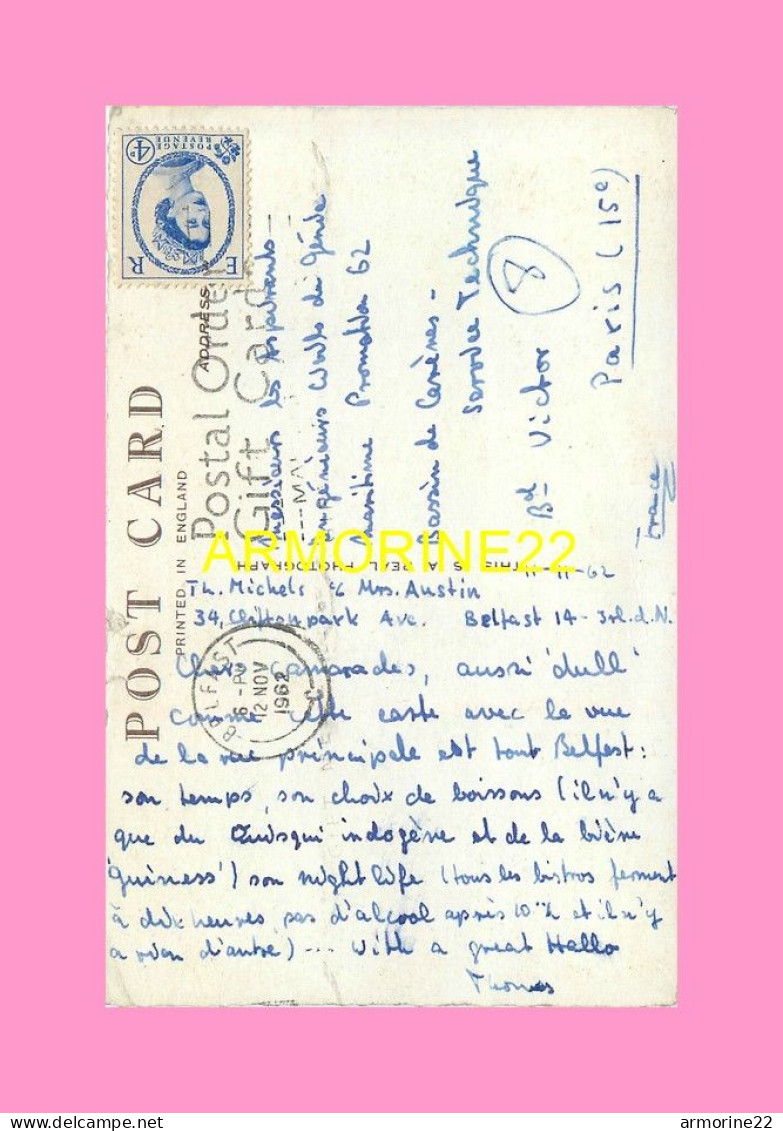 POSTAGE
REVENUE
4D
E R
POST CARD
PRINTED IN ENGLAND
ADDRESS
Postal Order
Gift Card
THIS IS A REAL PHOTOGRAPH
BELFAST
6 - PM
12 NOV
1962
Messieurs les Aspirants
Ingénieurs du Génie
Maritime Promotion 62
Bassin de Carènes -
Service Technique
8
Bd Victor
Paris (15e)
France
11-11-62
Th. Michels % Mrs. Austin
34, Cliftonpark Ave. Belfast 14 - Irl.d.N.
Chers camarades, aussi 'dull'
comme cette carte avec la vue
de la rue principale est tout Belfast:
son temps, son choix de boissons (il n'y a
que du Ouisqui indogène et de la bière
'guiness') son night life (tous les bistros ferment
à dix heures, pas d'alcool après 10h et il n'y
a rien d'autre) --- With a great Hallo
Thomas
ARMORINE22
armorine22